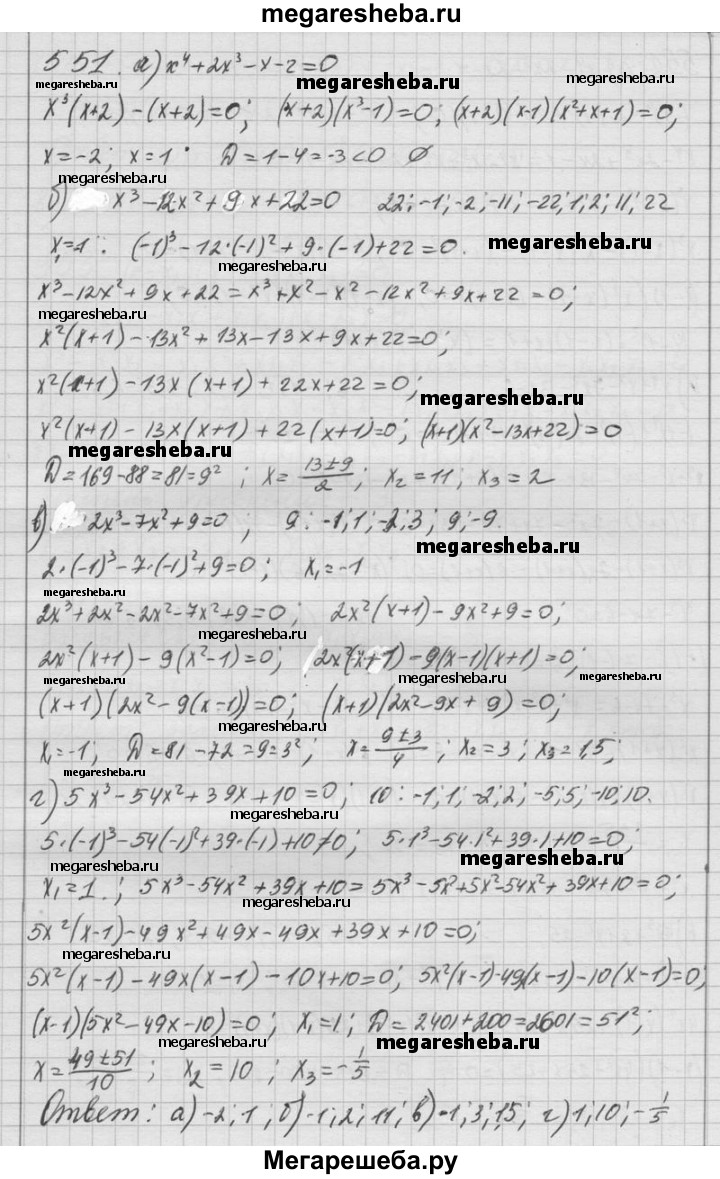 megaresheba.ru
551. а) x⁴+2x³-x-2=0
megaresheba.ru megaresheba.ru megaresheba.ru
x³(x+2)-(x+2)=0; (x+2)(x³-1)=0; (x+2)(x-1)(x²+x+1)=0;
x=-2; x=1. D=1-4=-3<0 ∅
megaresheba.ru
б) x³-12x²+9x+22=0 22; -1; -2; -11; -22; 1; 2; 11; 22
x₁=-1: (-1)³-12·(-1)²+9·(-1)+22=0. megaresheba.ru
megaresheba.ru
x³-12x²+9x+22=x³+x²-x²-12x²+9x+22=0;
megaresheba.ru
x²(x+1)-13x²+13x-13x+9x+22=0;
megaresheba.ru
x²(x+1)-13x(x+1)+22x+22=0;
megaresheba.ru
x²(x+1)-13x(x+1)+22(x+1)=0; (x+1)(x²-13x+22)=0
megaresheba.ru
D=169-88=81=9²; x=(13±9)/2; x₂=11; x₃=2
megaresheba.ru
в) 2x³-7x²+9=0; 9: -1; 1; -2; 3; 9; -9.
megaresheba.ru
2·(-1)³-7·(-1)²+9=0; x₁=-1
megaresheba.ru
2x³+2x²-2x²-7x²+9=0; 2x²(x+1)-9x²+9=0;
megaresheba.ru
2x²(x+1)-9(x²-1)=0; 2x²(x+1)-9(x-1)(x+1)=0;
megaresheba.ru megaresheba.ru megaresheba.ru
(x+1)(2x²-9(x-1))=0; (x+1)(2x²-9x+9)=0;
megaresheba.ru
x₁=-1; D=81-72=9=3²; x=(9±3)/4; x₂=3; x₃=1,5;
megaresheba.ru megaresheba.ru
г) 5x³-54x²+39x+10=0; 10: -1; 1; -2; 2; -5; 5; -10; 10.
megaresheba.ru
5·(-1)³-54(-1)²+39·(-1)+10≠0; 5·1³-54·1²+39·1+10=0;
megaresheba.ru megaresheba.ru
x₁=1.; 5x³-54x²+39x+10=5x³-5x²+5x²-54x²+39x+10=0;
megaresheba.ru
5x²(x-1)-49x²+49x-49x+39x+10=0;
megaresheba.ru
5x²(x-1)-49x(x-1)-10x+10=0; 5x²(x-1)-49x(x-1)-10(x-1)=0;
megaresheba.ru
(x-1)(5x²-49x-10)=0; x₁=1; D=2401+200=2601=51²;
megaresheba.ru megaresheba.ru
x=(49±51)/10; x₂=10; x₃=-1/5
megaresheba.ru
Ответ: а)-2; 1; б)-1; 2; 11; в)-1; 3; 1,5; г)1; 10; -1/5
Мегарешеба.ру